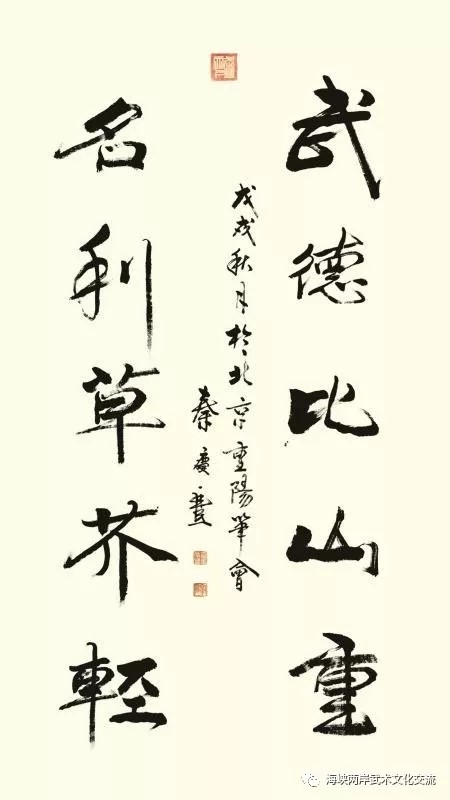 武德比山重
戊戌秋月於北京重陽筆會
秦慶豐
名利草芥輕
海峡两岸武术文化交流